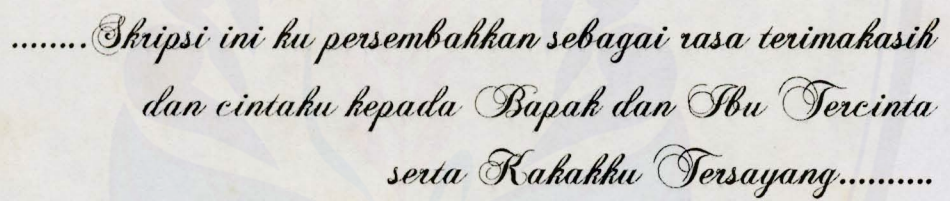 ........Skripsi ini ku persembahkan sebagai rasa terimakasih
dan cintaku kepada Bapak dan Ibu Tercinta
serta Kakakku Tersayang..........